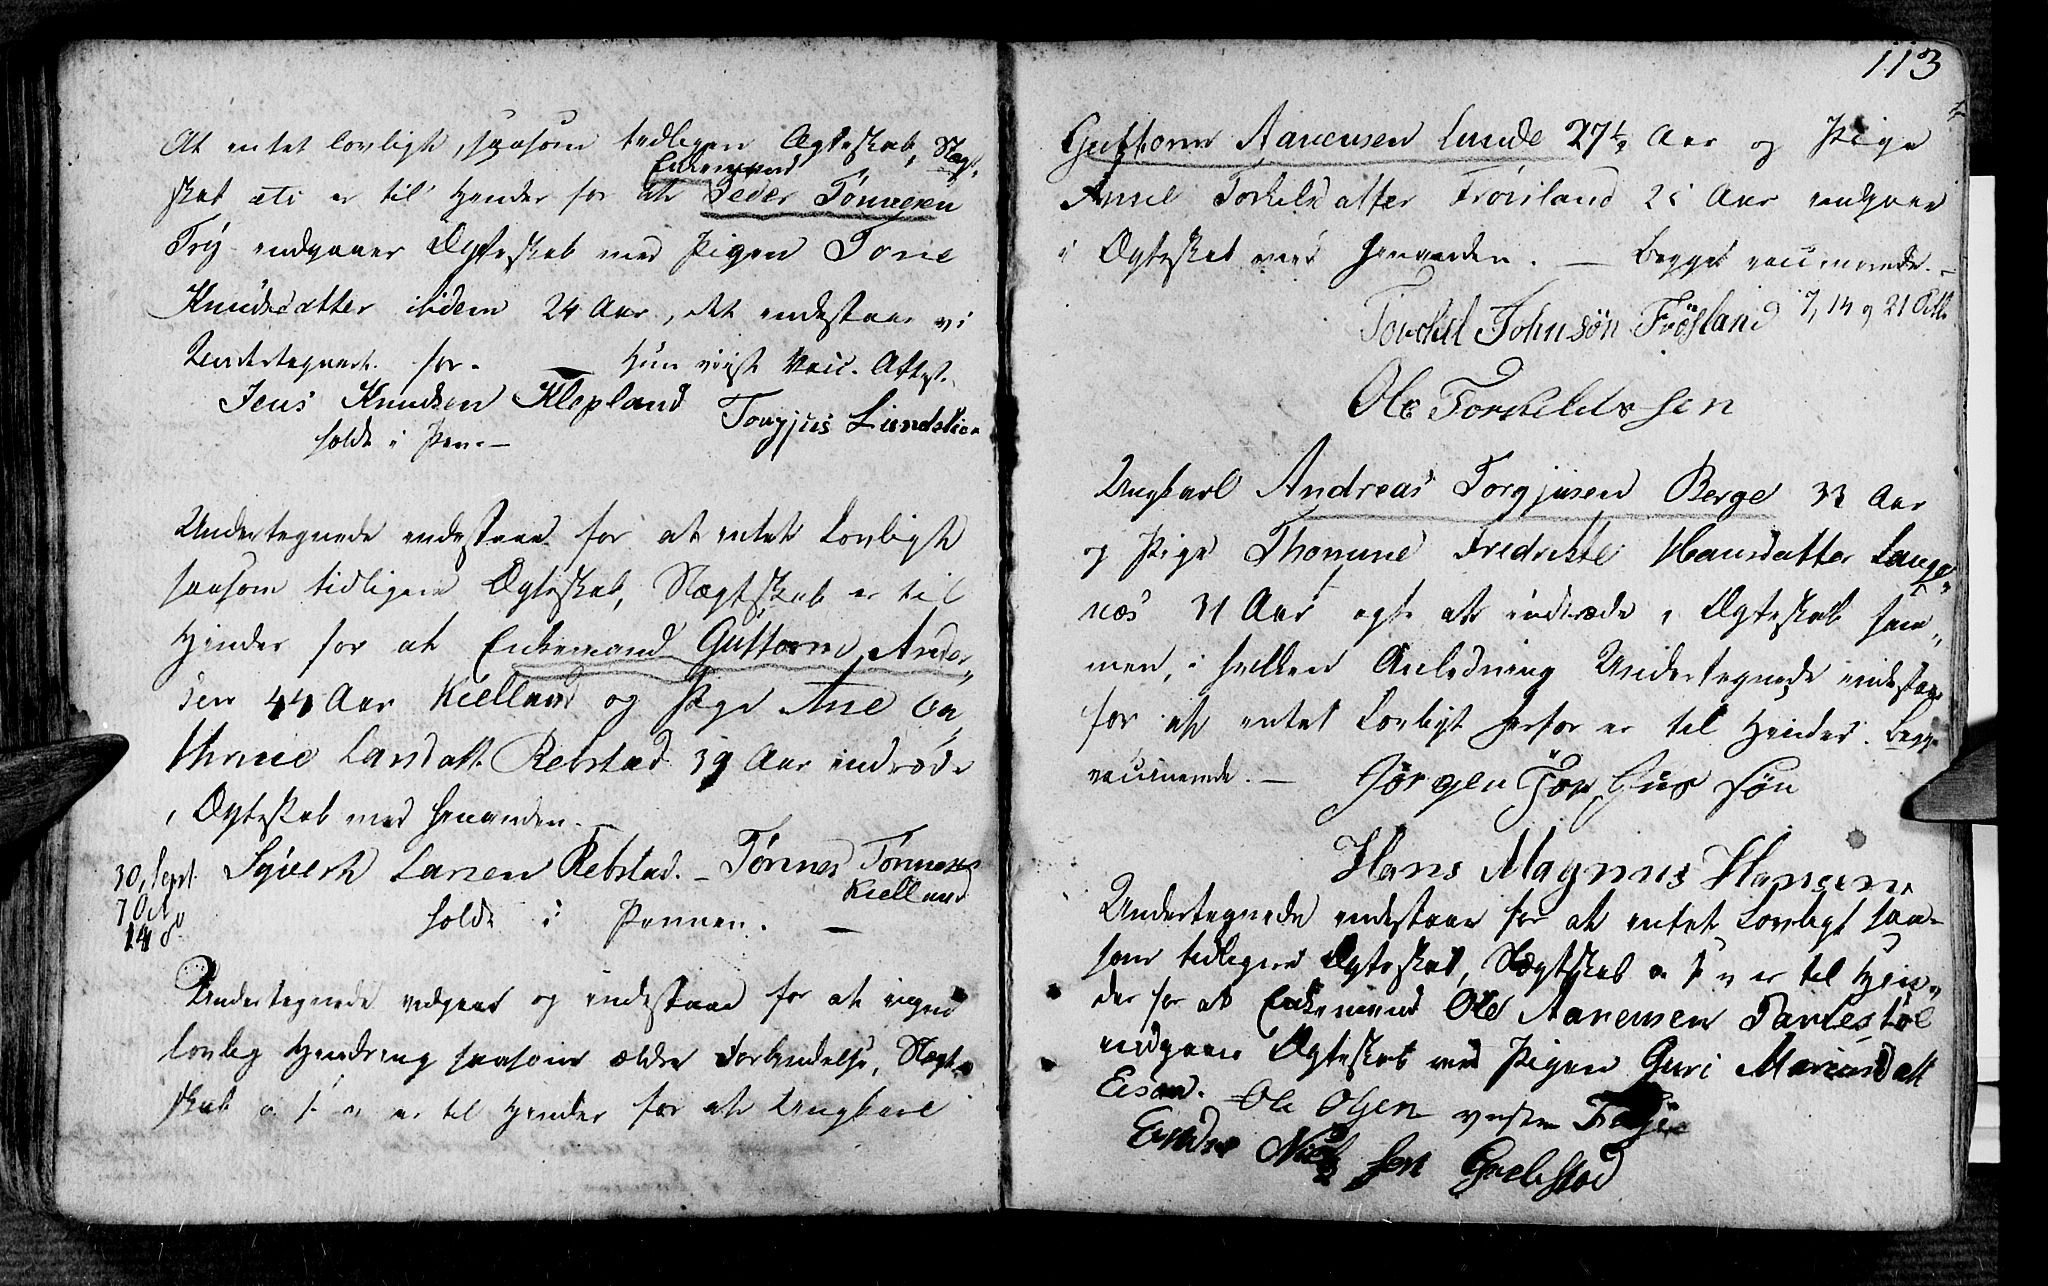 At intet lovligt, saasom tidligere Ægteskab, Slægt-
Enkemand
skab etc er til Hinder for at Peder Tønnesen
Try indgaaer Ægteskab med Pigen Tone
Knudsdatter ibidem 24 Aar, det indestaae vi
Undertegnede for. — Hun viist Vacc. Attest.
Jens Knudsen Klepland Torgjus Lundstien
holdt i Pen. —
Undertegnede indestaae for at intet Lovligt
saasom tidligere Ægteskab, Slægtskab er til
Hinder for at Enkemand Guttorm Ander,,
sen 44 Aar Kielland og Pige Ane Ca,,
thrine Larsdatt. Rebstad 39 Aar indtræde
i Ægteskab med hinanden. —
30, Sept. Syvert Larsen Rebstad. — Tønnes Tønnesen
Kielland
7 Oct
holdt i Pennen. —
14 do
Undertegnede vedgaae og indestaae for at ingen
lovlig Hindring saasom ældre Forbindelse, Slægt-
skab o. s. v. er til Hinder for at Ungkarl
113
Guttorm Aanensen Lunde 27½ Aar og Pige
Anne Torkelsdatter Frøisland 25 Aar indgaae
i Ægteskab med hinanden. — Begge vaccinerede. —
7, 14 og 21 Octb
Torckel Johnsøn Frøsland
Ole Torkeldssen
Ungkarl Andreas Torgjusen Berge 33 Aar
og Pige Thomine Fredrikke Hansdatter Lange,,
næs 31 Aar agte at indtræde i Ægteskab sam,,
men, i hvilken Anledning Undertegnede indestaae
for at intet Lovligt herfor er til Hinder. Begge
vaccinerede. — Jørgen Tor jus søn
Hans Magnus Hansen.
Undertegnede indestaae for at intet Lovligt saa-
som tidligere Ægteskab, Slægtskab o s v er til Hin,,
der for at Enkemand Ole Aanensen
indgaaer Ægteskab med Pigen Guri datt
Ole Olsen
Endre Niels sen